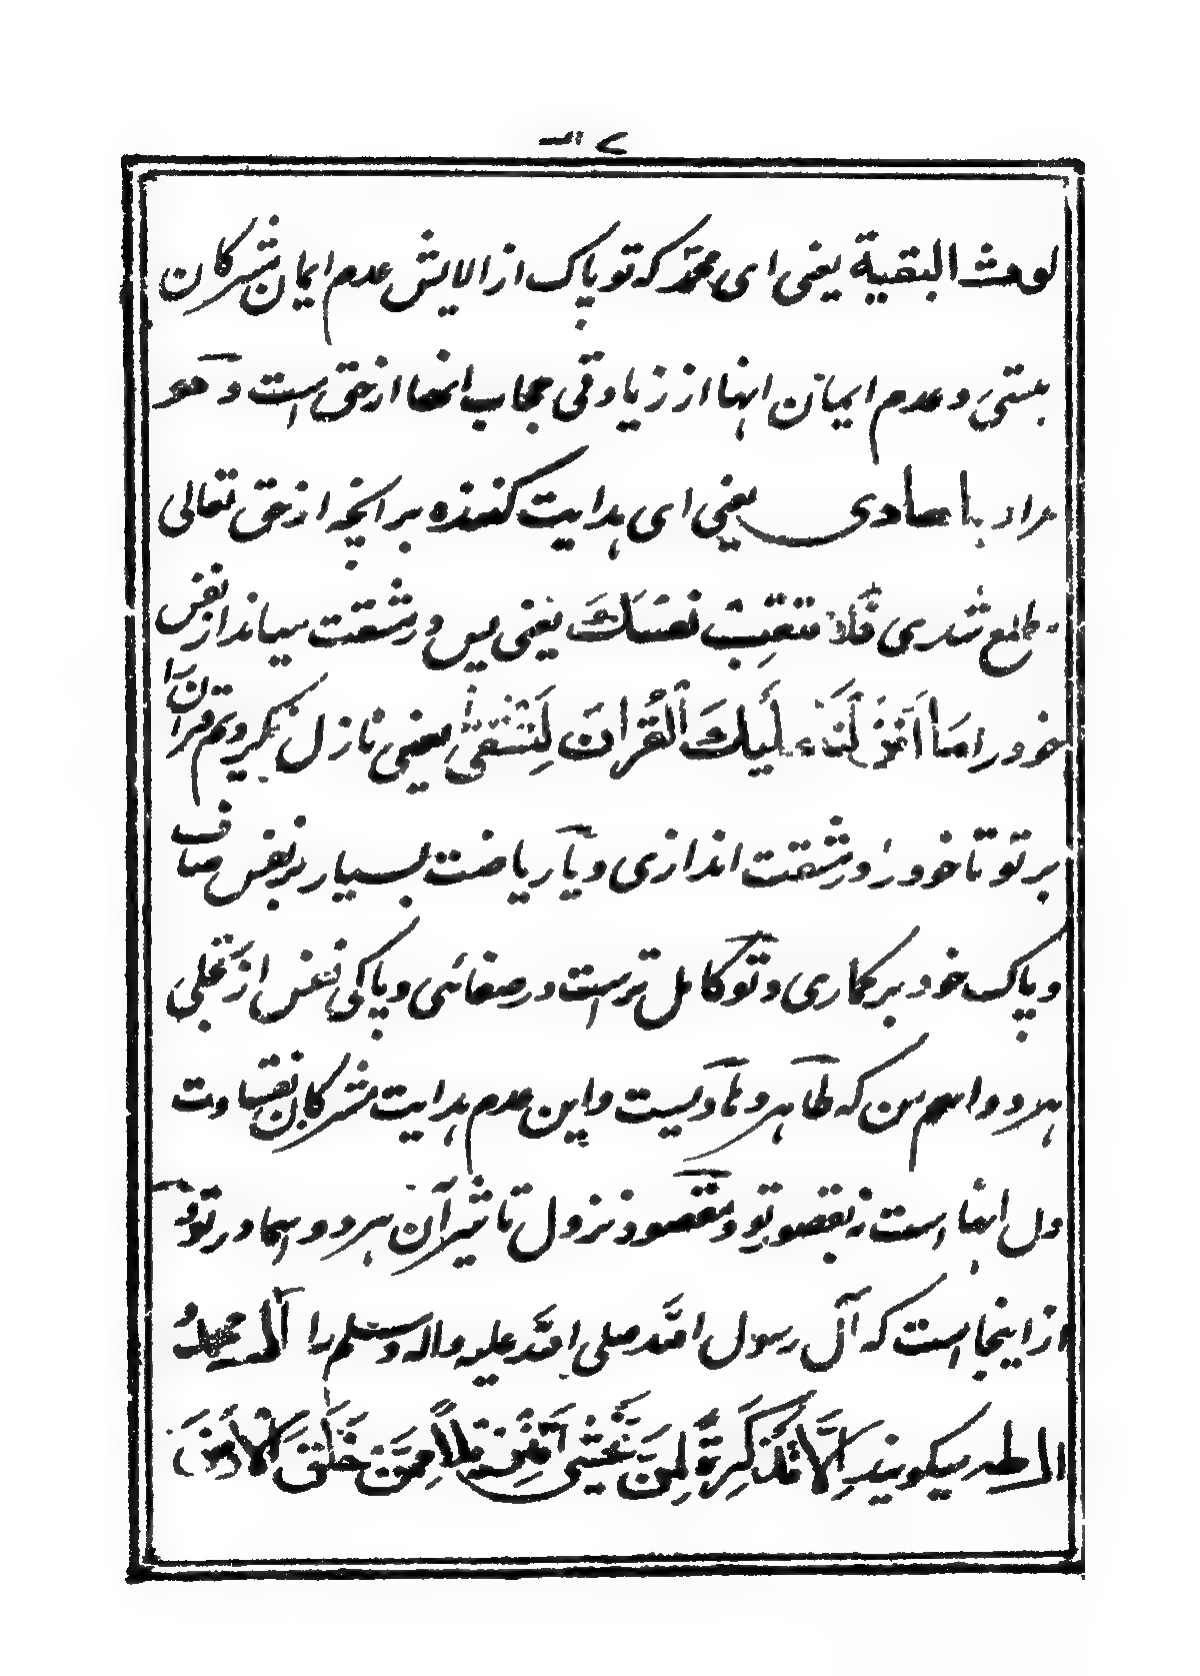 لوث البقية يعنى اى محمد كه تو پاك از الايش عدم ايمان مشركان
هستى و عدم ايمان اينها از زيادتى حجاب انها از حق است و هو
مراد يا هادى يعنى اى هدايت كننده بر انچه از حق تعالى
مطلع شدى فلا تتعب نفسك يعنى پس در مشقت مينداز نفس
خود را مَا اَنْزَلْنَا عَلَيْكَ الْقُرْانَ لِتَشْقَىٰ يعنى نازل نكرديم قران را
بر تو تا خود را در مشقت اندازى و يا رياضت بسيار بر نفس صاف
و پاك خود بركارى و تو كامل تر است در صفائى و پاكى نفس از تجلى
هر دو اسم من كه طاهر و هاديست و اين عدم هدايت مشركان بقساوت
دل انها است نه بقصور تو و مقصود نزول تاثير آن هر دو اسما در تو و
از اينجاست كه آل رسول الله صلى الله عليه واله وسلم را آل محمد
ال طه ميگويند اِلَّا تَذْكِرَةً لِمَنْ يَخْشَىٰ تَنْزِيلًا مِمَّنْ خَلَقَ الْاَرْضَ